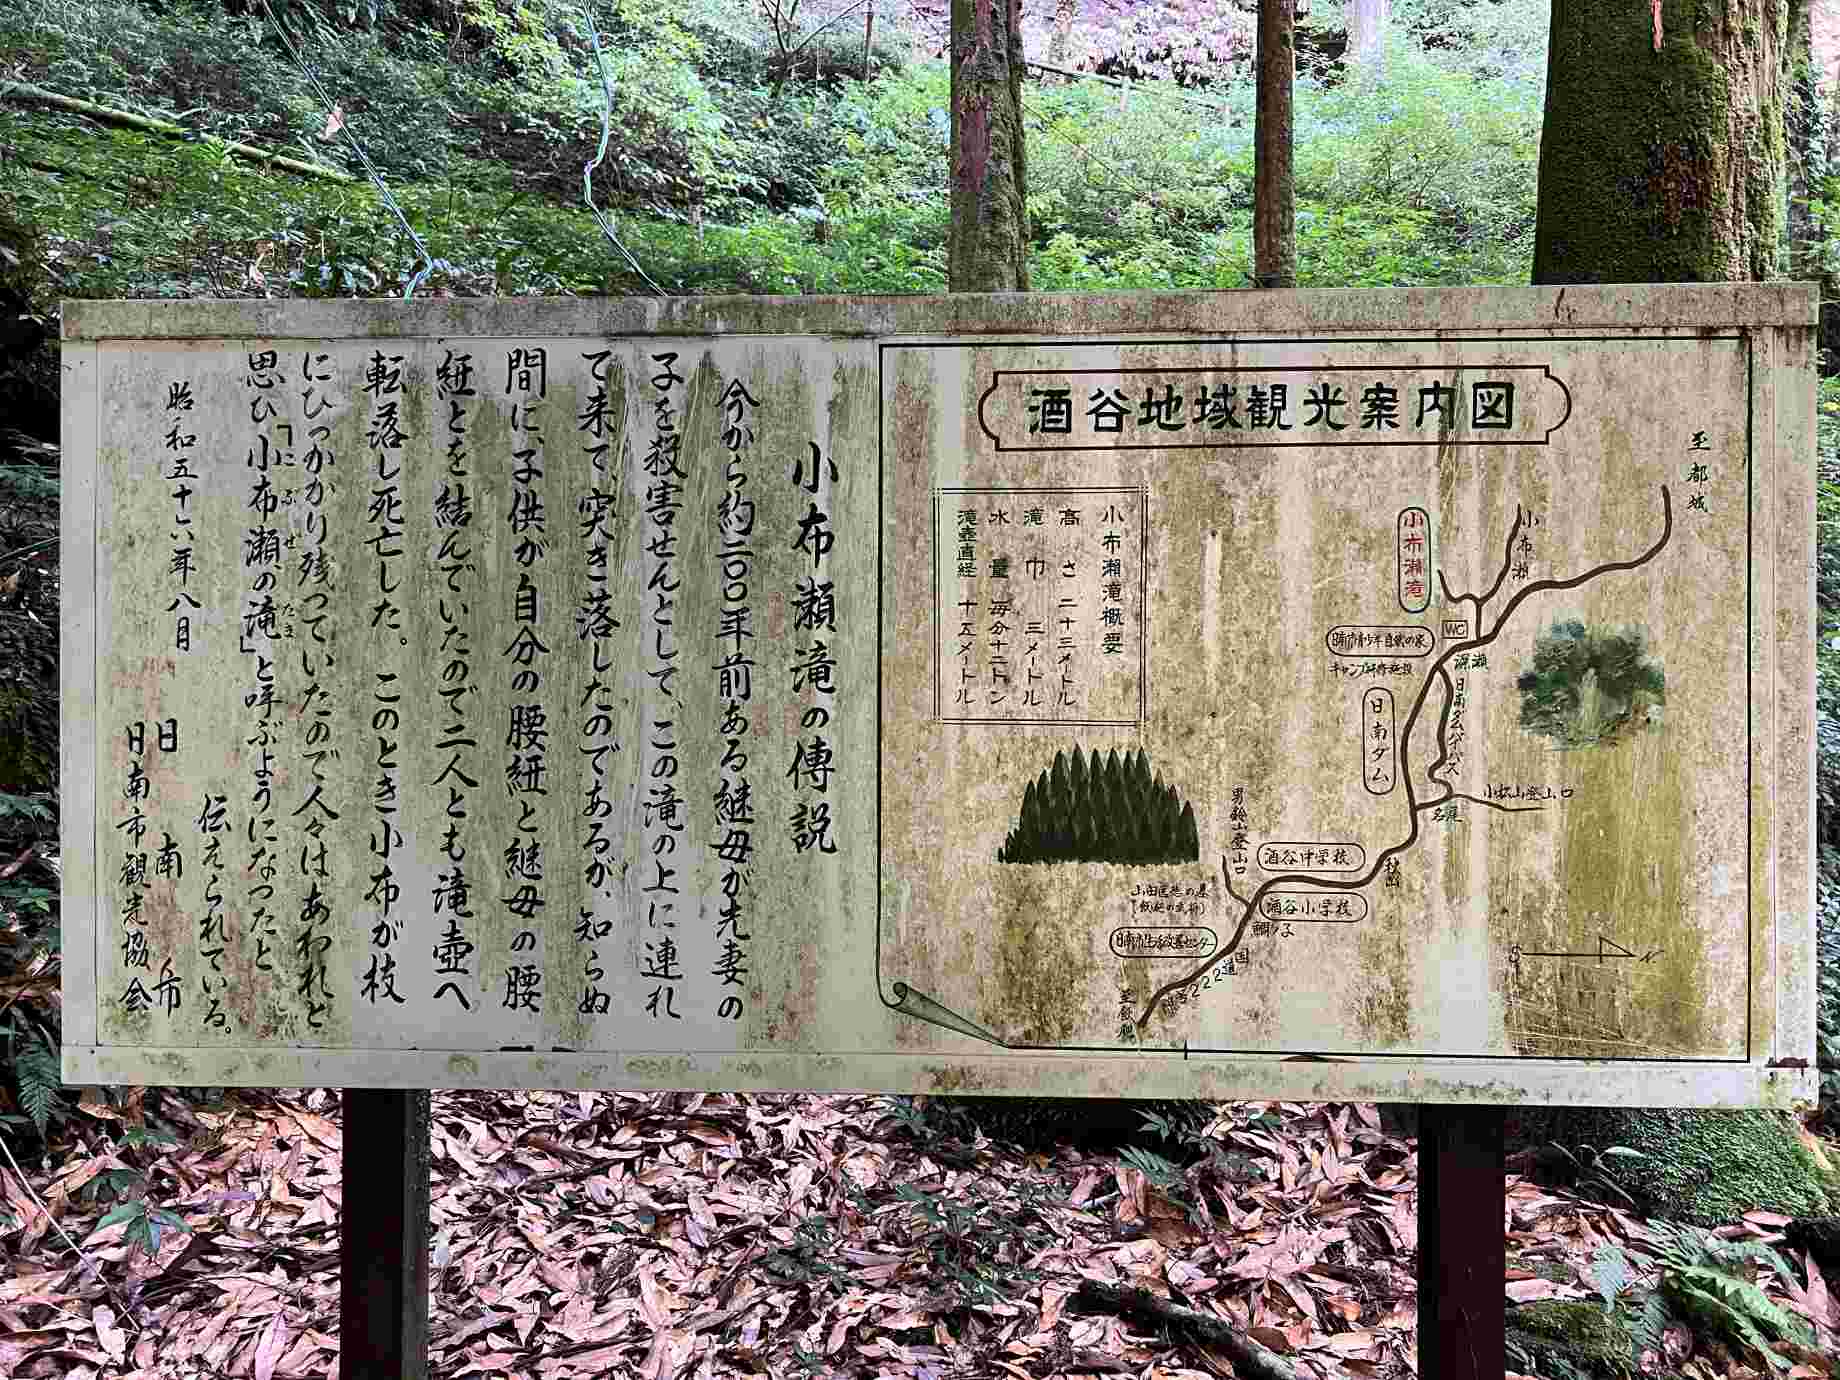 酒谷地域観光案内図
至都城
小布瀬
小布瀬滝
WC
深瀬
キャンプ研修施設
日南ダムバイパス
日南ダム
小松山登山口
名尾
秋山
男鈴山登山口
酒谷中学校
酒谷小学校
鯛ノ子
日南市生活改善センター
国道222
至飫肥
S
N
小布瀬滝概要
高さ 二十三メートル
滝巾 三メートル
水量 毎分十二トン
滝壺直経 十五メートル
小布瀬滝の傳説
今から約二〇〇年前ある継母が先妻の
子を殺害せんとして、この滝の上に連れ
て来て、突き落したのであるが、知らぬ
間に、子供が自分の腰紐と継母の腰
紐とを結んでいたので二人とも滝壺へ
転落し死亡した。このとき小布が枝
にひっかかり残っていたので人々はあわれと
思ひ「小布瀬の滝」と呼ぶようになったと
にぶせ たき
伝えられている。
昭和五十六年八月
日南市
日南市観光協会